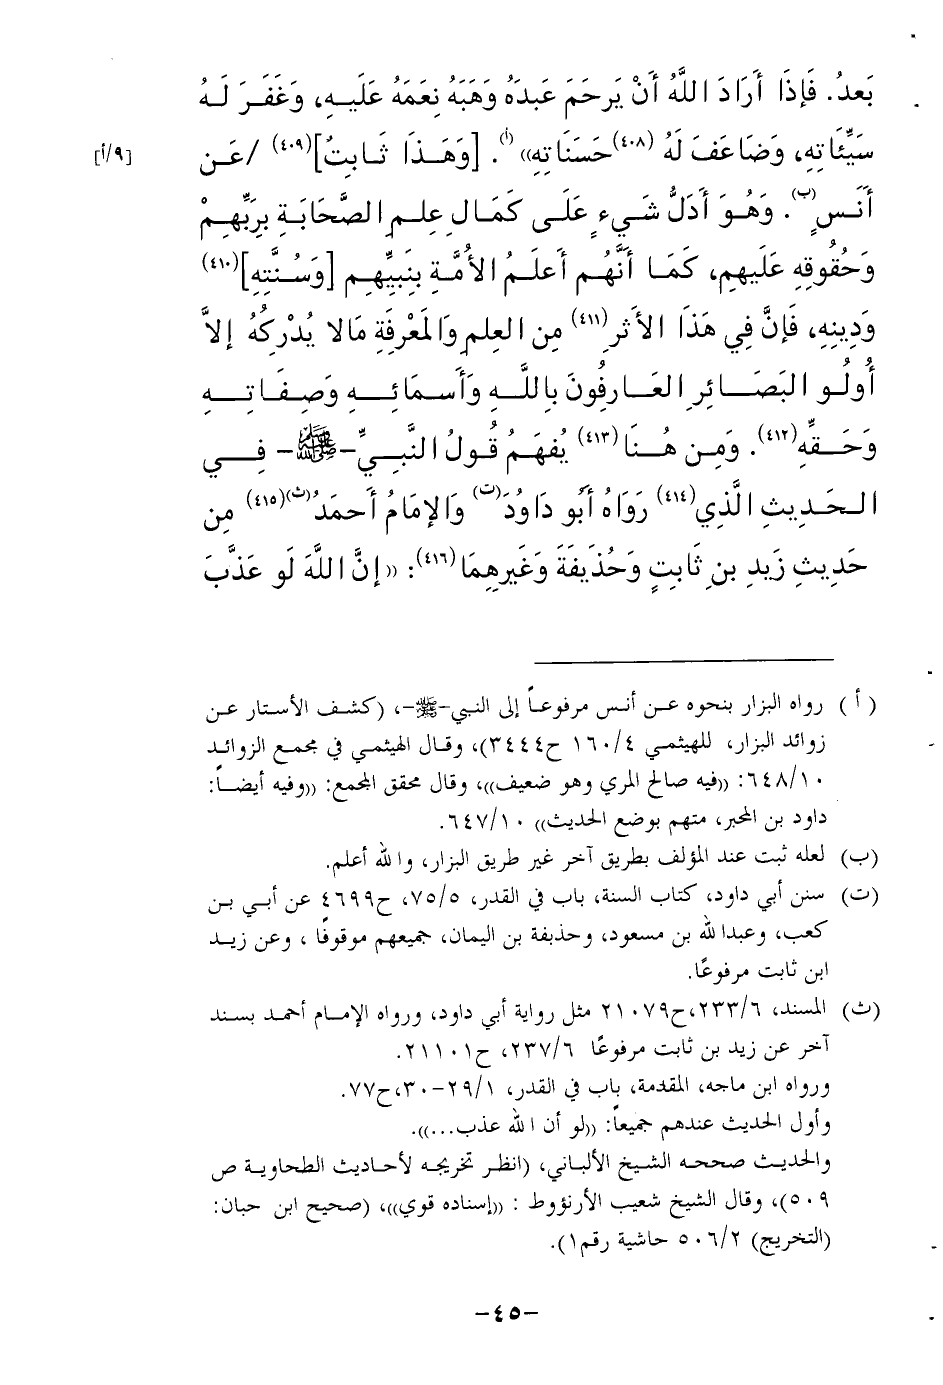 بَعدُ. فَإِذَا أَرَادَ اللَّهُ أَنْ يَرحَمَ عَبدَهُ وَهَبَهُ نِعَمَهُ عَلَيهِ، وَغَفَرَ لَهُ
سَيِّئَاتِهِ، وَضَاعَفَ لَهُ (٤٠٨) حَسَنَاتِهِ»(أ). [وَهَذَا ثَابِتٌ](٤٠٩) /عَن
[٩/أ]
أَنَسٍ(ب). وَهُوَ أَدَلُّ شَيءٍ عَلَى كَمَالِ عِلمِ الصَّحَابَةِ بِرَبِّهِمْ
وَحُقُوقِهِ عَلَيهِم، كَمَا أَنَّهُم أَعلَمُ الأُمَّةِ بِنَبِيِّهِم [وَسُنَّتِهِ](٤١٠)
وَدِينِهِ، فَإِنَّ فِي هَذَا الأَثرِ(٤١١) مِن العِلمِ وَالمَعْرِفَةِ مَالا يُدْرِكُهُ إِلاَّ
أُولُو البَصَائِرِ العَارِفُونَ بِاللَّهِ وَأَسمَائِهِ وَصِفَاتِهِ
وَحَقِّهِ(٤١٢). وَمِن هُنَا (٤١٣) يُفهَمُ قُولُ النَّبِيِّ-ﷺ- فِي
الحَدِيثِ الَّذِي(٤١٤) رَوَاهُ أَبُو دَاوُدَ(ت) وَالإِمَامُ أَحمَدُ(ث)(٤١٥) مِن
حَدِيثِ زَيدِ بنِ ثَابِتٍ وَحُذَيفَةَ وَغَيرِهِمَا(٤١٦): «إِنَّ اللَّهَ لَو عَذَّبَ
(أ) رواه البزار بنحوه عن أنس مرفوعاً إلى النبي-ﷺ-، (كشف الأستار عن
زوائد البزار، للهيثمي ٤/ ١٦٠ ح٣٤٤٤)، وقال الهيثمي في مجمع الزوائد
١٠/ ٦٤٨: «فيه صالح المري وهو ضعيف»، وقال محقق المجمع: «وفيه أيضاً:
داود بن المحبر، متهم بوضع الحديث» ١٠/ ٦٤٧.
(ب) لعله ثبت عند المؤلف بطريق آخر غير طريق البزار، والله أعلم.
(ت) سنن أبي داود، كتاب السنة، باب في القدر، ٥/ ٧٥، ح٤٦٩٩ عن أبي بن
كعب، وعبدالله بن مسعود، وحذيفة بن اليمان، جميعهم موقوفًا ، وعن زيد
ابن ثابت مرفوعًا.
(ث) المسند، ٦/ ٢٣٣،ح٢١٠٧٩ مثل رواية أبي داود، ورواه الإمام أحمد بسند
آخر عن زيد بن ثابت مرفوعًا ٦/ ٢٣٧، ح٢١١٠١.
ورواه ابن ماجه، المقدمة، باب في القدر، ١/ ٢٩-٣٠،ح٧٧.
وأول الحديث عندهم جميعاً: «لو أن الله عذب...».
والحديث صححه الشيخ الألباني، (انظر تخريجه لأحاديث الطحاوية ص
٥٠٩)، وقال الشيخ شعيب الأرنؤوط : «إسناده قوي»، (صحيح ابن حبان:
(التخريج) ٢/ ٥٠٦ حاشية رقم١).
-٤٥-